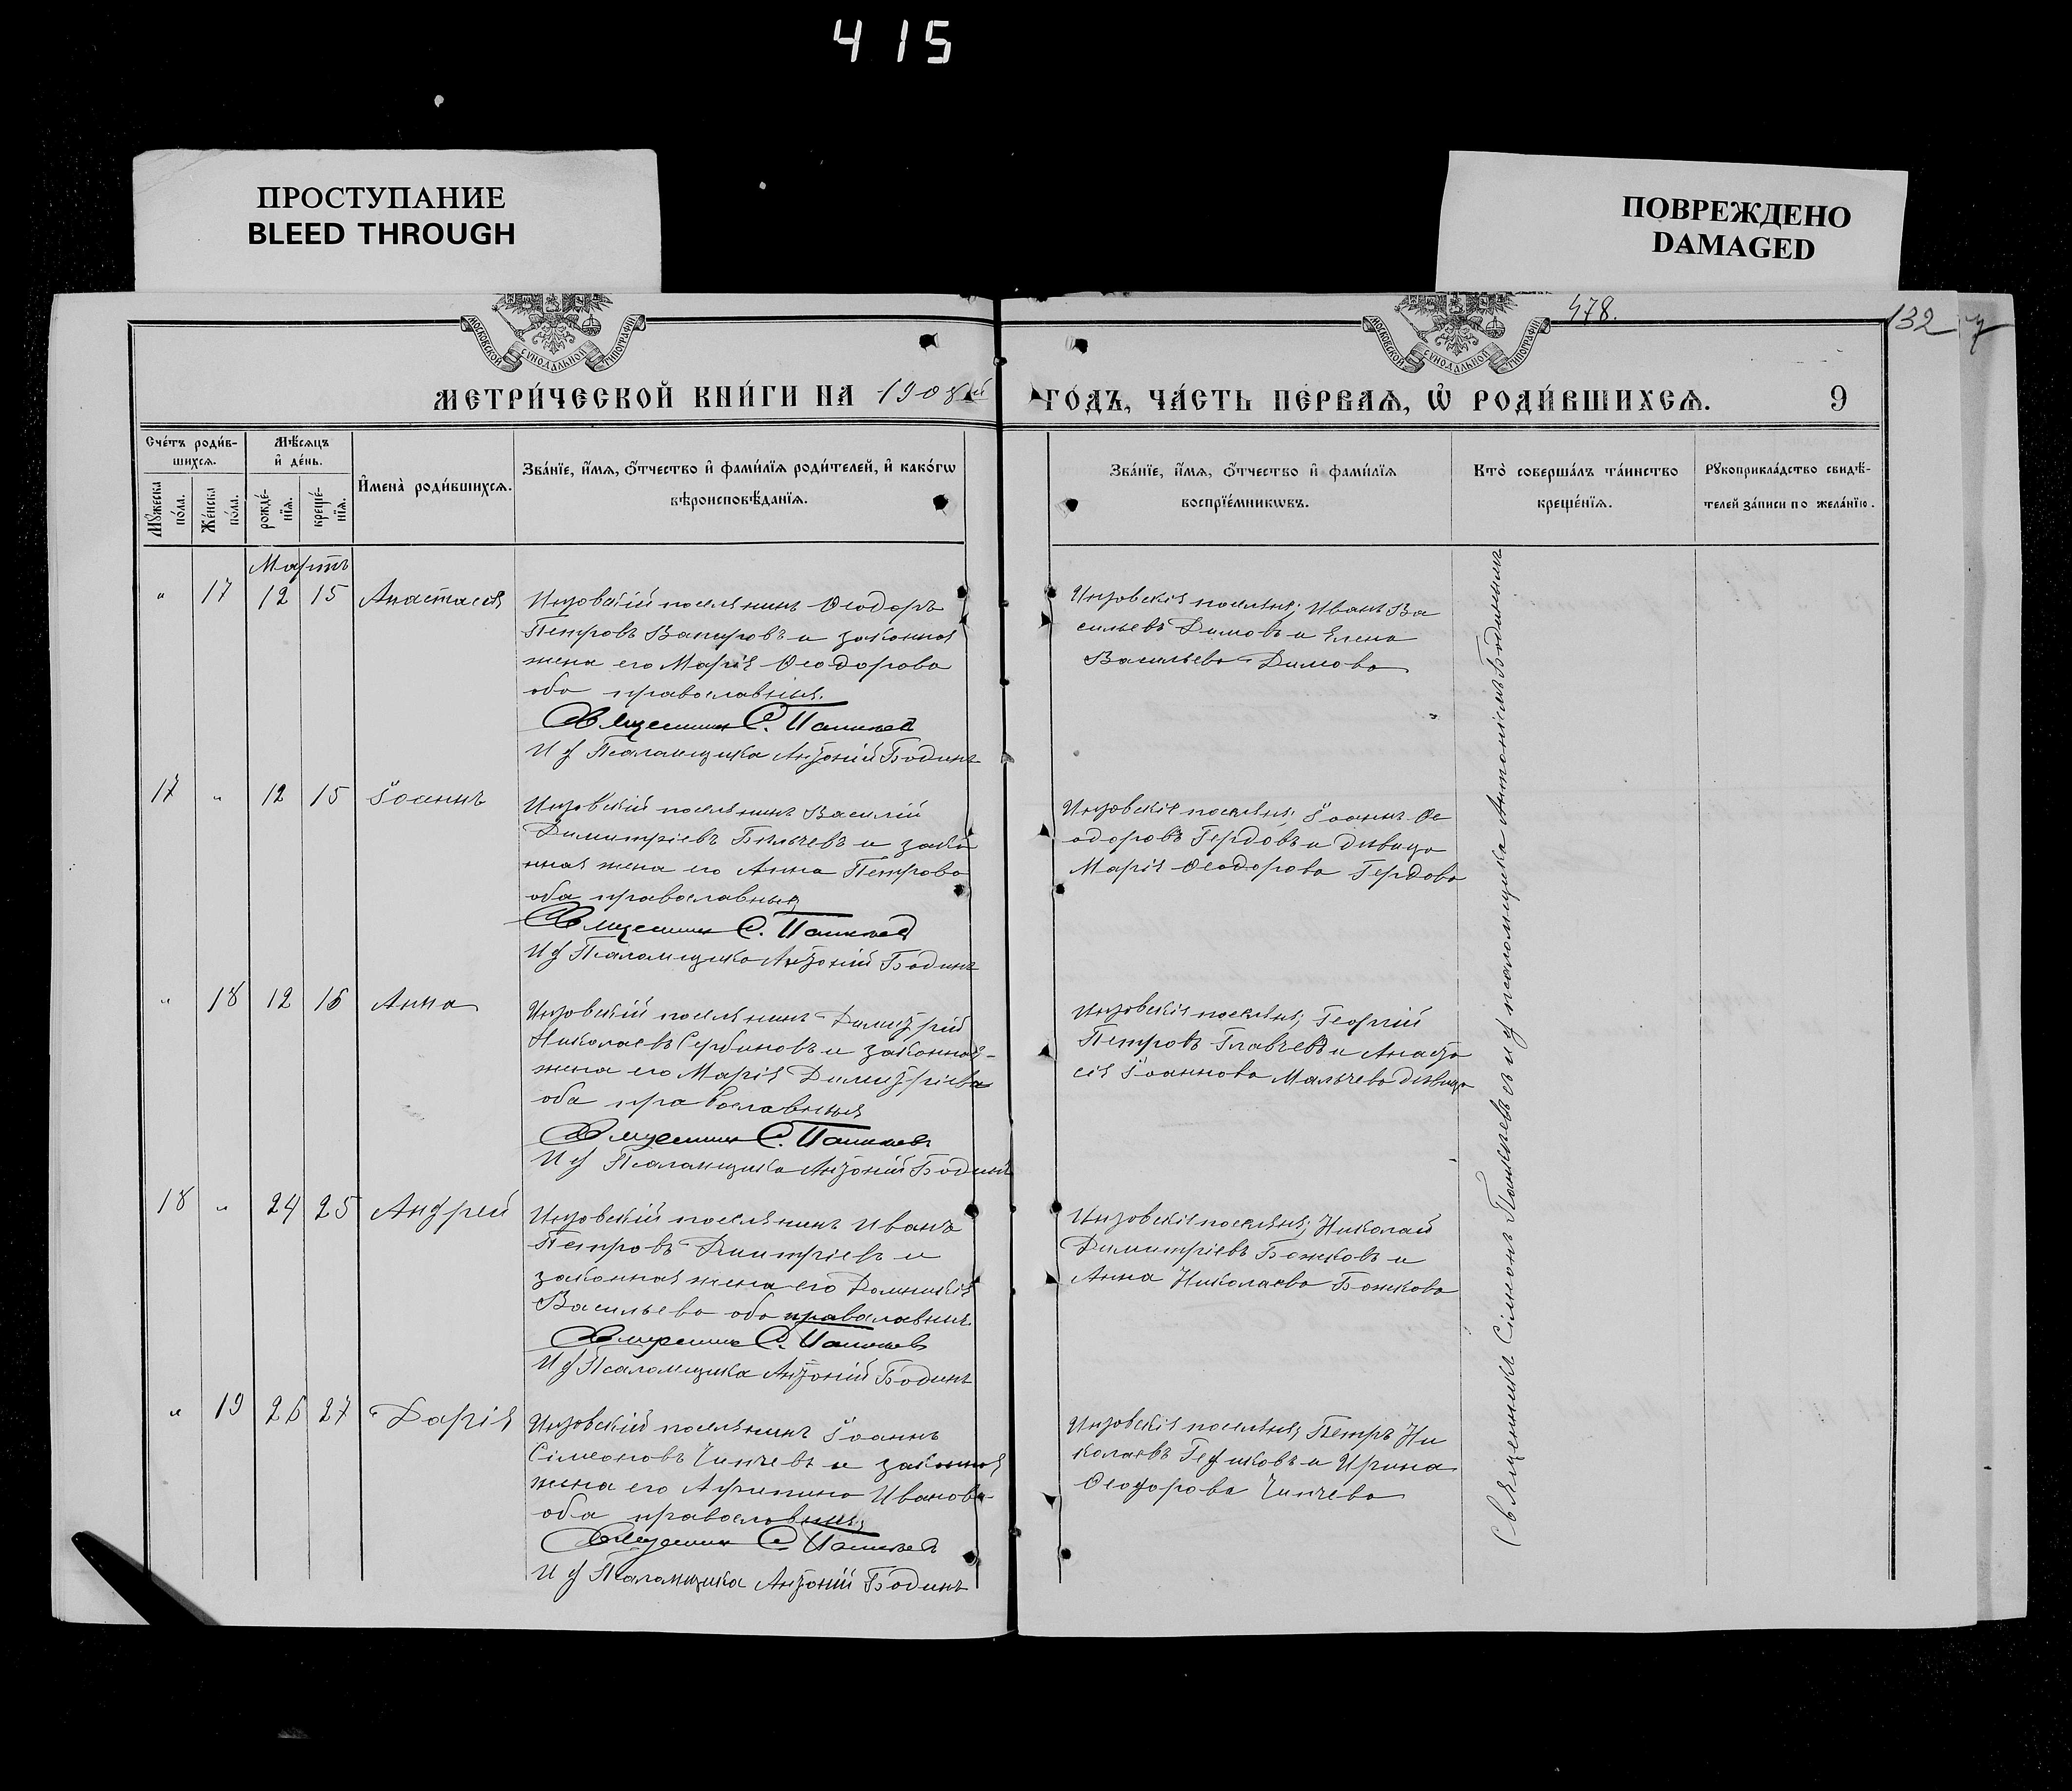 415
ПРОСТУПАНИЕ
BLEED THROUGH
ПОВРЕЖДЕНО
DAMAGED
478.
132
МОСКОВСКОЙ СѴНОДАЛЬНОЙ ТИПОГРАФІИ
МОСКОВСКОЙ СѴНОДАЛЬНОЙ ТИПОГРАФІИ
МЕТРИ́ЧЕСКОЙ КНИ́ГИ НА 1908й
ГО́ДЪ, ЧА́СТЬ ПЕ́РВАѦ, Ѡ҆ РОДИ́ВШИХСѦ. 9
Сче́тъ роди́в-
шихсѧ.
Мꙋ́жеска по́ла.
Же́нска по́ла.
Мѣ́сѧцъ
и҆ де́нь.
рожде́-
нїѧ.
креще́-
нїѧ.
И҆мена̀ роди́вшихсѧ.
Зва́нїе, и҆́мѧ, ѻ҆́тчество и҆ фами́лїѧ роди́телей, и҆ како́гѡ
вѣроисповѣ́данїѧ.
Зва́нїе, и҆́мѧ, ѻ҆́тчество и҆ фами́лїѧ
воспрїе́мникѡвъ.
Кто̀ соверша́лъ та́инство
креще́нїѧ.
Рꙋкоприкла́дство свидѣ́-
телей за́писи по жела́нїю.
Мартъ
" 17 12 15 Анастасія
Инзовскій поселянинъ Ѳеодоръ
Петровъ Вапировъ и законная
жена его Марія Ѳеодорова
оба православныя.
Священникъ С. Пашичев
И д Псаломщика Антоній Бодинъ
Инзовскія поселяня; Иванъ Ва
сильевъ Димовъ и Елена
Васильева Димова
17 " 12 15 Іоаннъ
Инзовскій поселянинъ Василій
Димитріевъ Бѣльчевъ и зако
нная жена его Анна Петрова
оба православныя
Священникъ С. Пашичев
И д Псаломщика Антоній Бодинъ
Инзовскія поселяня; Іоаннъ Ѳе
одоровъ Гердовъ и дѣвица
Марія Ѳеодорова Гердова
" 18 12 16 Анна
Инзовскій поселянинъ Димитрій
Николаевъ Сербиновъ и законная
жена его Марія Димитріева
оба православныя
Священникъ С. Пашичев
И д Псаломщика Антоній Бодинъ
Инзовскія поселяня; Георгій
Петровъ Главчевъ и Анаста
сія Іоаннова Мальчева дѣвица
18 " 24 25 Андрей
Инзовскій поселянинъ Иванъ
Петровъ Дмитріевъ и
законная жена его Домникія
Васильева оба православныя.
Священникъ С. Пашичев
И д Псаломщика Антоній Бодинъ
Инзовскія поселяня; Николай
Димитріевъ Божковъ и
Анна Николаева Божкова
" 19 26 27 Дарія
Инзовскій поселянинъ Іоаннъ
Сімеоновъ Чинчевъ и законная
жена его Агрипина Иванова
оба православныя
Священникъ С. Пашичев
И д Псаломщика Антоній Бодинъ
Инзовскія поселяня; Петръ Ни
колаевъ Гедиковъ и Ирина
Ѳеодорова Чинчева
Священникъ Сімеонъ Пашичевъ съ и д псаломщика Антоніемъ Бодинымъ